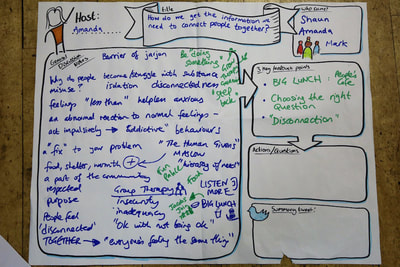 Host:
Amanda......
title
How do we get the information we
need to connect people together?
who came?
Shaun
Amanda
Mark
General Discussion
Barrier of jargon
"Be doing
something"
Why do people become/struggle with substance
misuse? isolation disconnectedness
step
back
feelings "less than" helpless anxious
an abnormal reaction to normal feelings -
act impulsively → "addictive" behaviours
a "fix" to your problem
"The Human Givens"
MASLOW
food, shelter, warmth
"hierarchy of need"
a part of the community
Fun
Police
Food
respected
purpose
Group Therapy
Insecurity
inadequacy
LISTEN
MORE
BIG LUNCH
People feel
'disconnected'
"OK with not being OK"
TOGETHER → "everyone's feeling the same thing"
3 Key Important points
BIG LUNCH : People's
Cafe
Choosing the right
Question
"Disconnection"
Actions/Questions
My Summary tweet: